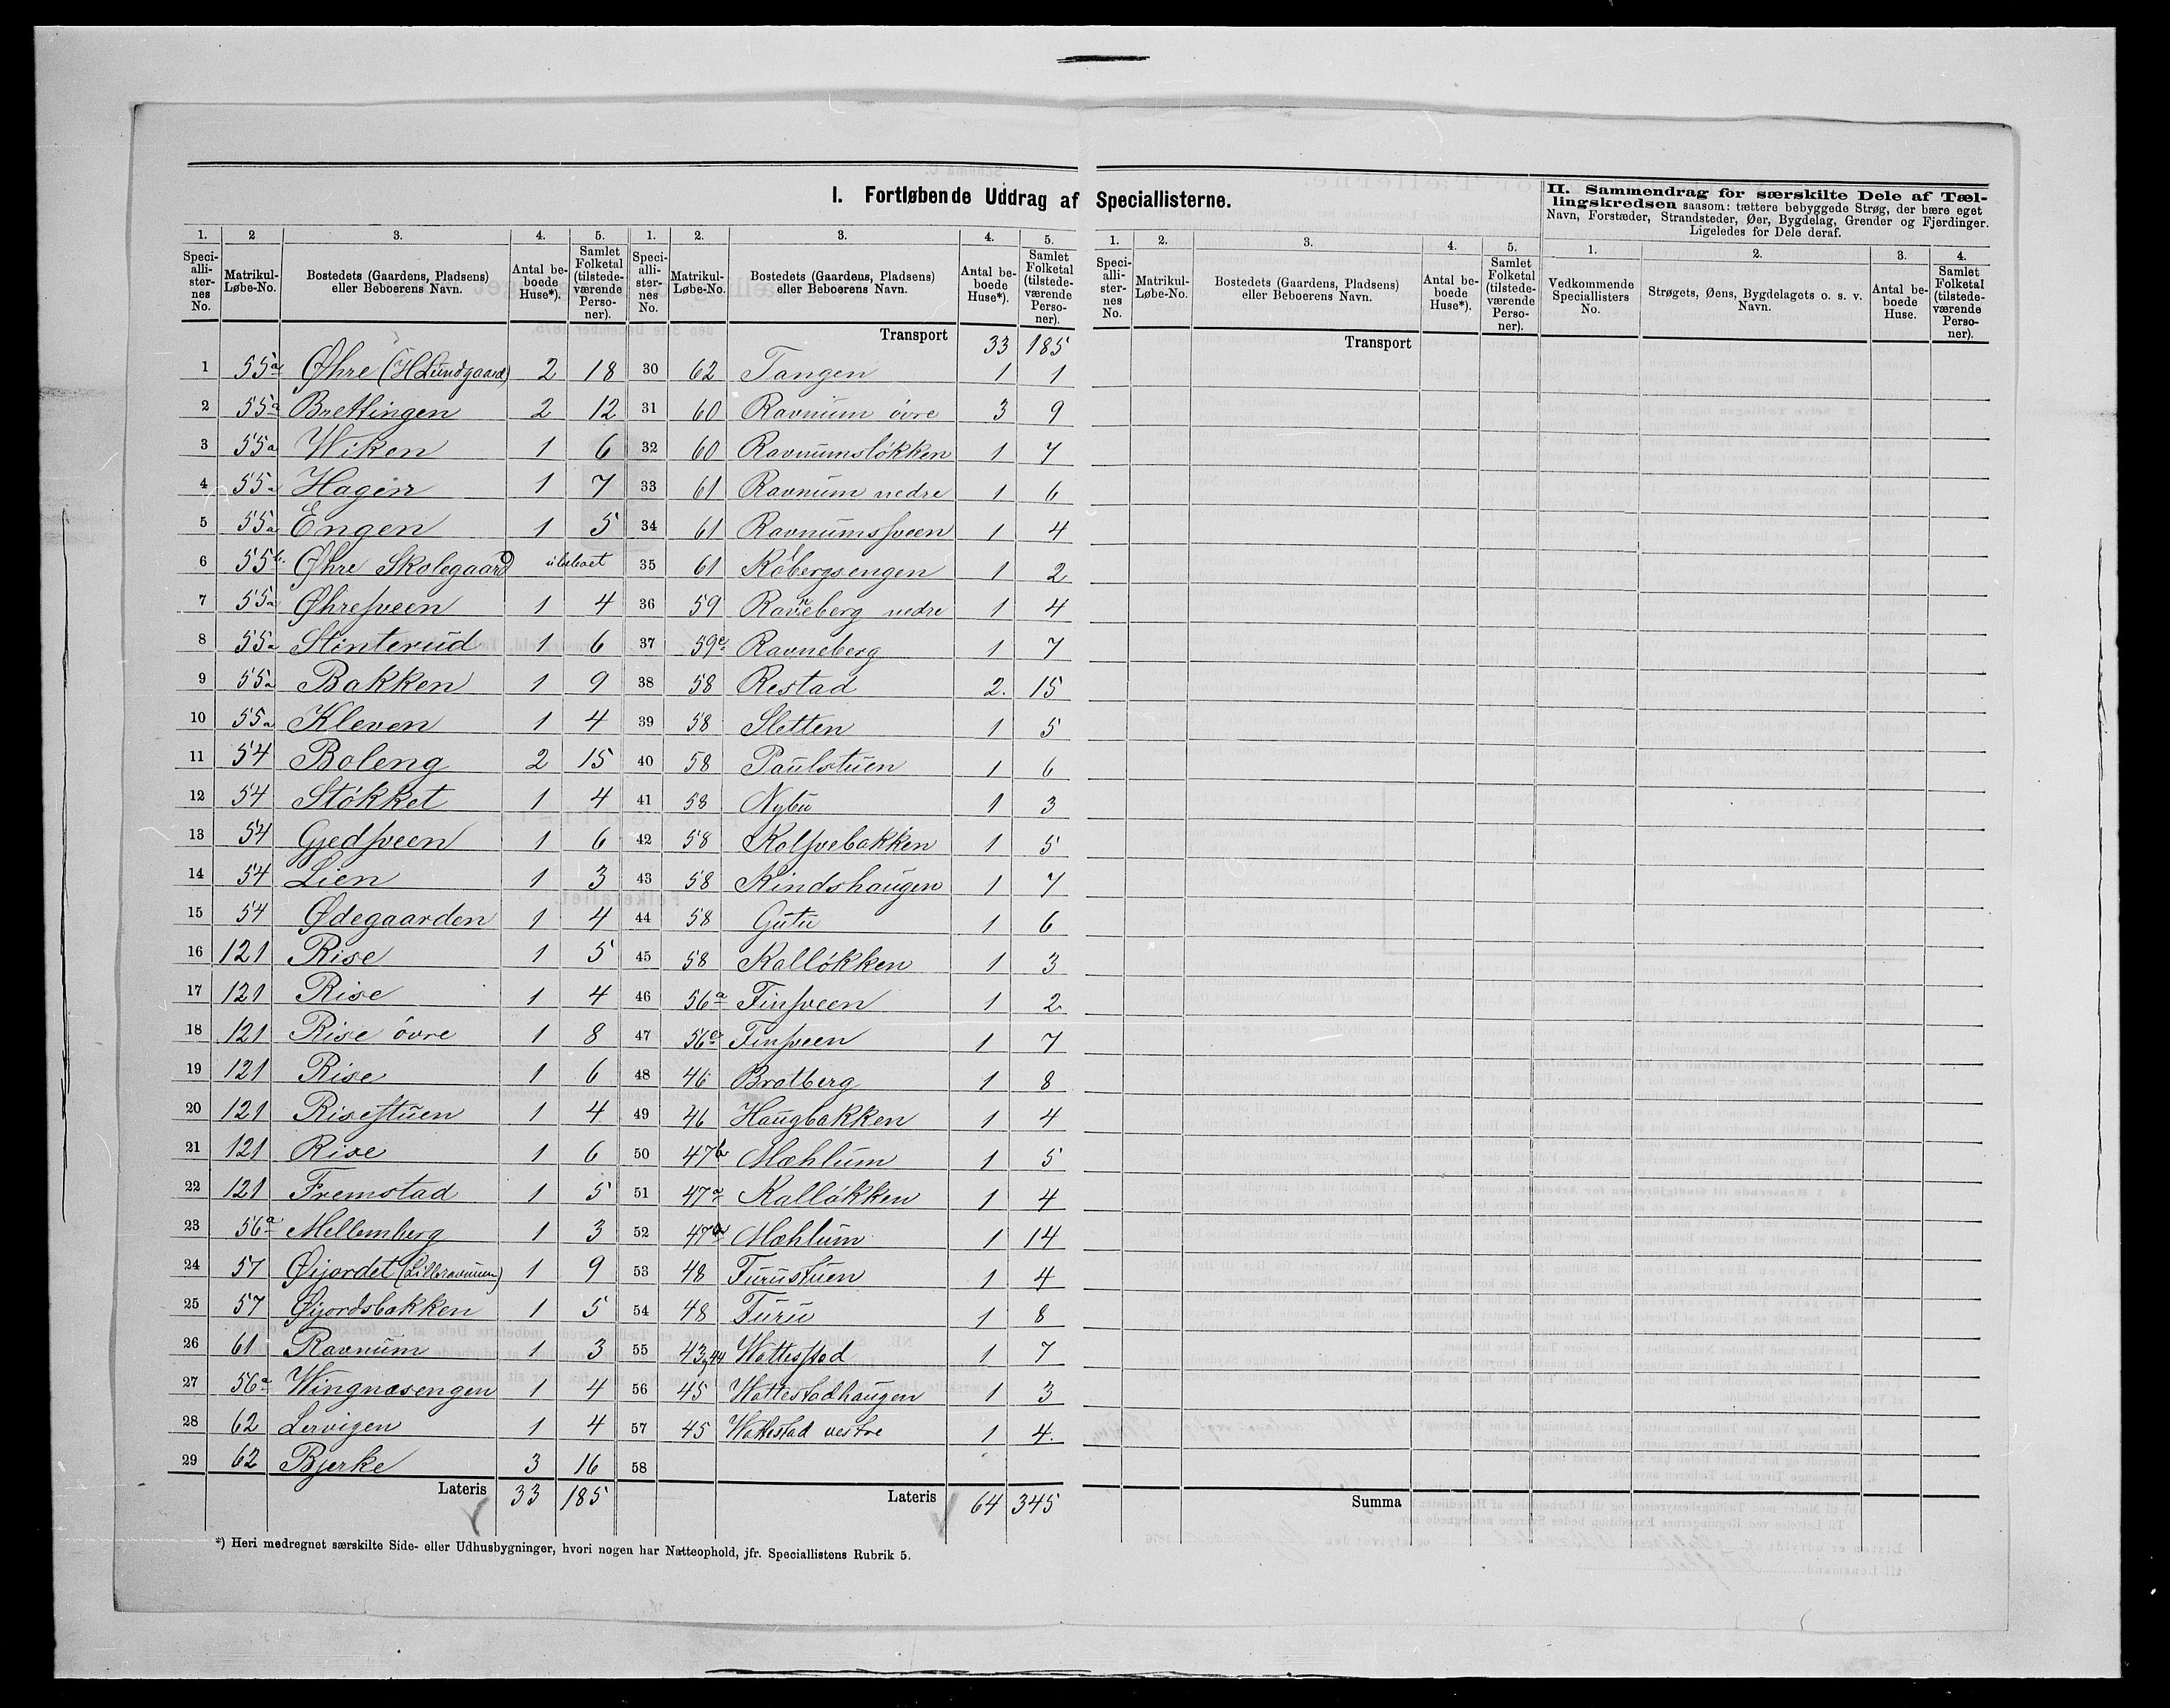 I. Fortløbende Uddrag af Speciallisterne.
II. Sammendrag for særskilte Dele af Tæl-
lingskredsen saasom: tættere bebyggede Strøg, der bære eget
Navn, Forstæder, Strandsteder, Øer, Bygdelag, Grender og Fjerdinger.
Ligeledes for Dele deraf.
1. 2 3. 4. 5.
Speciallisternes No. Matrikul-Løbe-No. Bostedets (Gaardens, Pladsens) eller Beboerens Navn. Antal beboede Huse*). Samlet Folketal (tilstedeværende Personer).
1 55a Øhre (H Lundgaard) 2 18
2 55a Brettingen 2 12
3 55a Wiken 1 6
4 55a Hagen 1 7
5 55a Engen 1 5
6 55b Øhre Skolegaard ubeboet
7 55a Øhresveen 1 4
8 55a Slinterud 1 6
9 55a Bakken 1 9
10 55a Kleven 1 4
11 54 Boleng 2 15
12 54 Stökket 1 4
13 54 Gjedsveen 1 6
14 54 Lien 1 3
15 54 Ødegaarden 1 4
16 121 Rise 1 5
17 121 Rise 1 4
18 121 Rise övre 1 8
19 121 Rise 1 6
20 121 Risestuen 1 4
21 121 Rise 1 6
22 121 Fremstad 1 5
23 56a Mellemberg 1 3
24 57 Øijordet (Lilleravnum) 1 9
25 57 Øijordsbakken 1 5
26 61 Ravnum 1 3
27 56a Wingnæsengen 1 4
28 62 Lervigen 1 4
29 62 Bjerke 3 16
Lateris 33 185
1. 2. 3. 4. 5.
Speciallisternes No. Matrikul-Løbe-No. Bostedets (Gaardens, Pladsens) eller Beboerens Navn. Antal beboede Huse*). Samlet Folketal (tilstedeværende Personer).
Transport 33 185
30 62 Tangen 1 1
31 60 Ravnum övre 3 9
32 60 Ravnumslökken 1 7
33 61 Ravnum nedre 1 6
34 61 Ravnumsveen 1 4
35 61 Röbergsengen 1 2
36 59 Ravneberg nedre 1 4
37 59c Ravneberg 1 7
38 58 Restad 2. 15
39 58 Sletten 1 5
40 58 Paulstuen 1 6
41 58 Nybu 1 3
42 58 Kolsvebakken 1 5
43 58 Kindshaugen 1 7
44 58 Gutu 1 6
45 58 Kallökken 1 3
46 56a Finsveen 1 2
47 56c Finsveen 1 7
48 46 Bratberg 1 8
49 46 Haugbakken 1 4
50 47b Mæhlum 1 5
51 47a Kallökken 1 4
52 47b Mæhlum 1 14
53 48 Furustuen 1 4
54 48 Furu 1 8
55 43,44 Wattestad 1 7
56 45 Wattestadhaugen 1 3
57 45 Wattestad vestre 1 4.
58
Lateris 64 345
1. 2. 3. 4. 5.
Speciallisternes No. Matrikul-Løbe-No. Bostedets (Gaardens, Pladsens) eller Beboerens Navn. Antal beboede Huse*). Samlet Folketal (tilstedeværende Personer).
Transport
Summa
1. 2. 3. 4.
Vedkommende Speciallisters No. Strøgets, Øens, Bygdelagets o. s. v. Navn. Antal beboede Huse. Samlet Folketal (tilstedeværende Personer).
*) Heri medregnet særskilte Side- eller Udhusbygninger, hvori nogen har Natteophold, jfr. Speciallistens Rubrik 5.